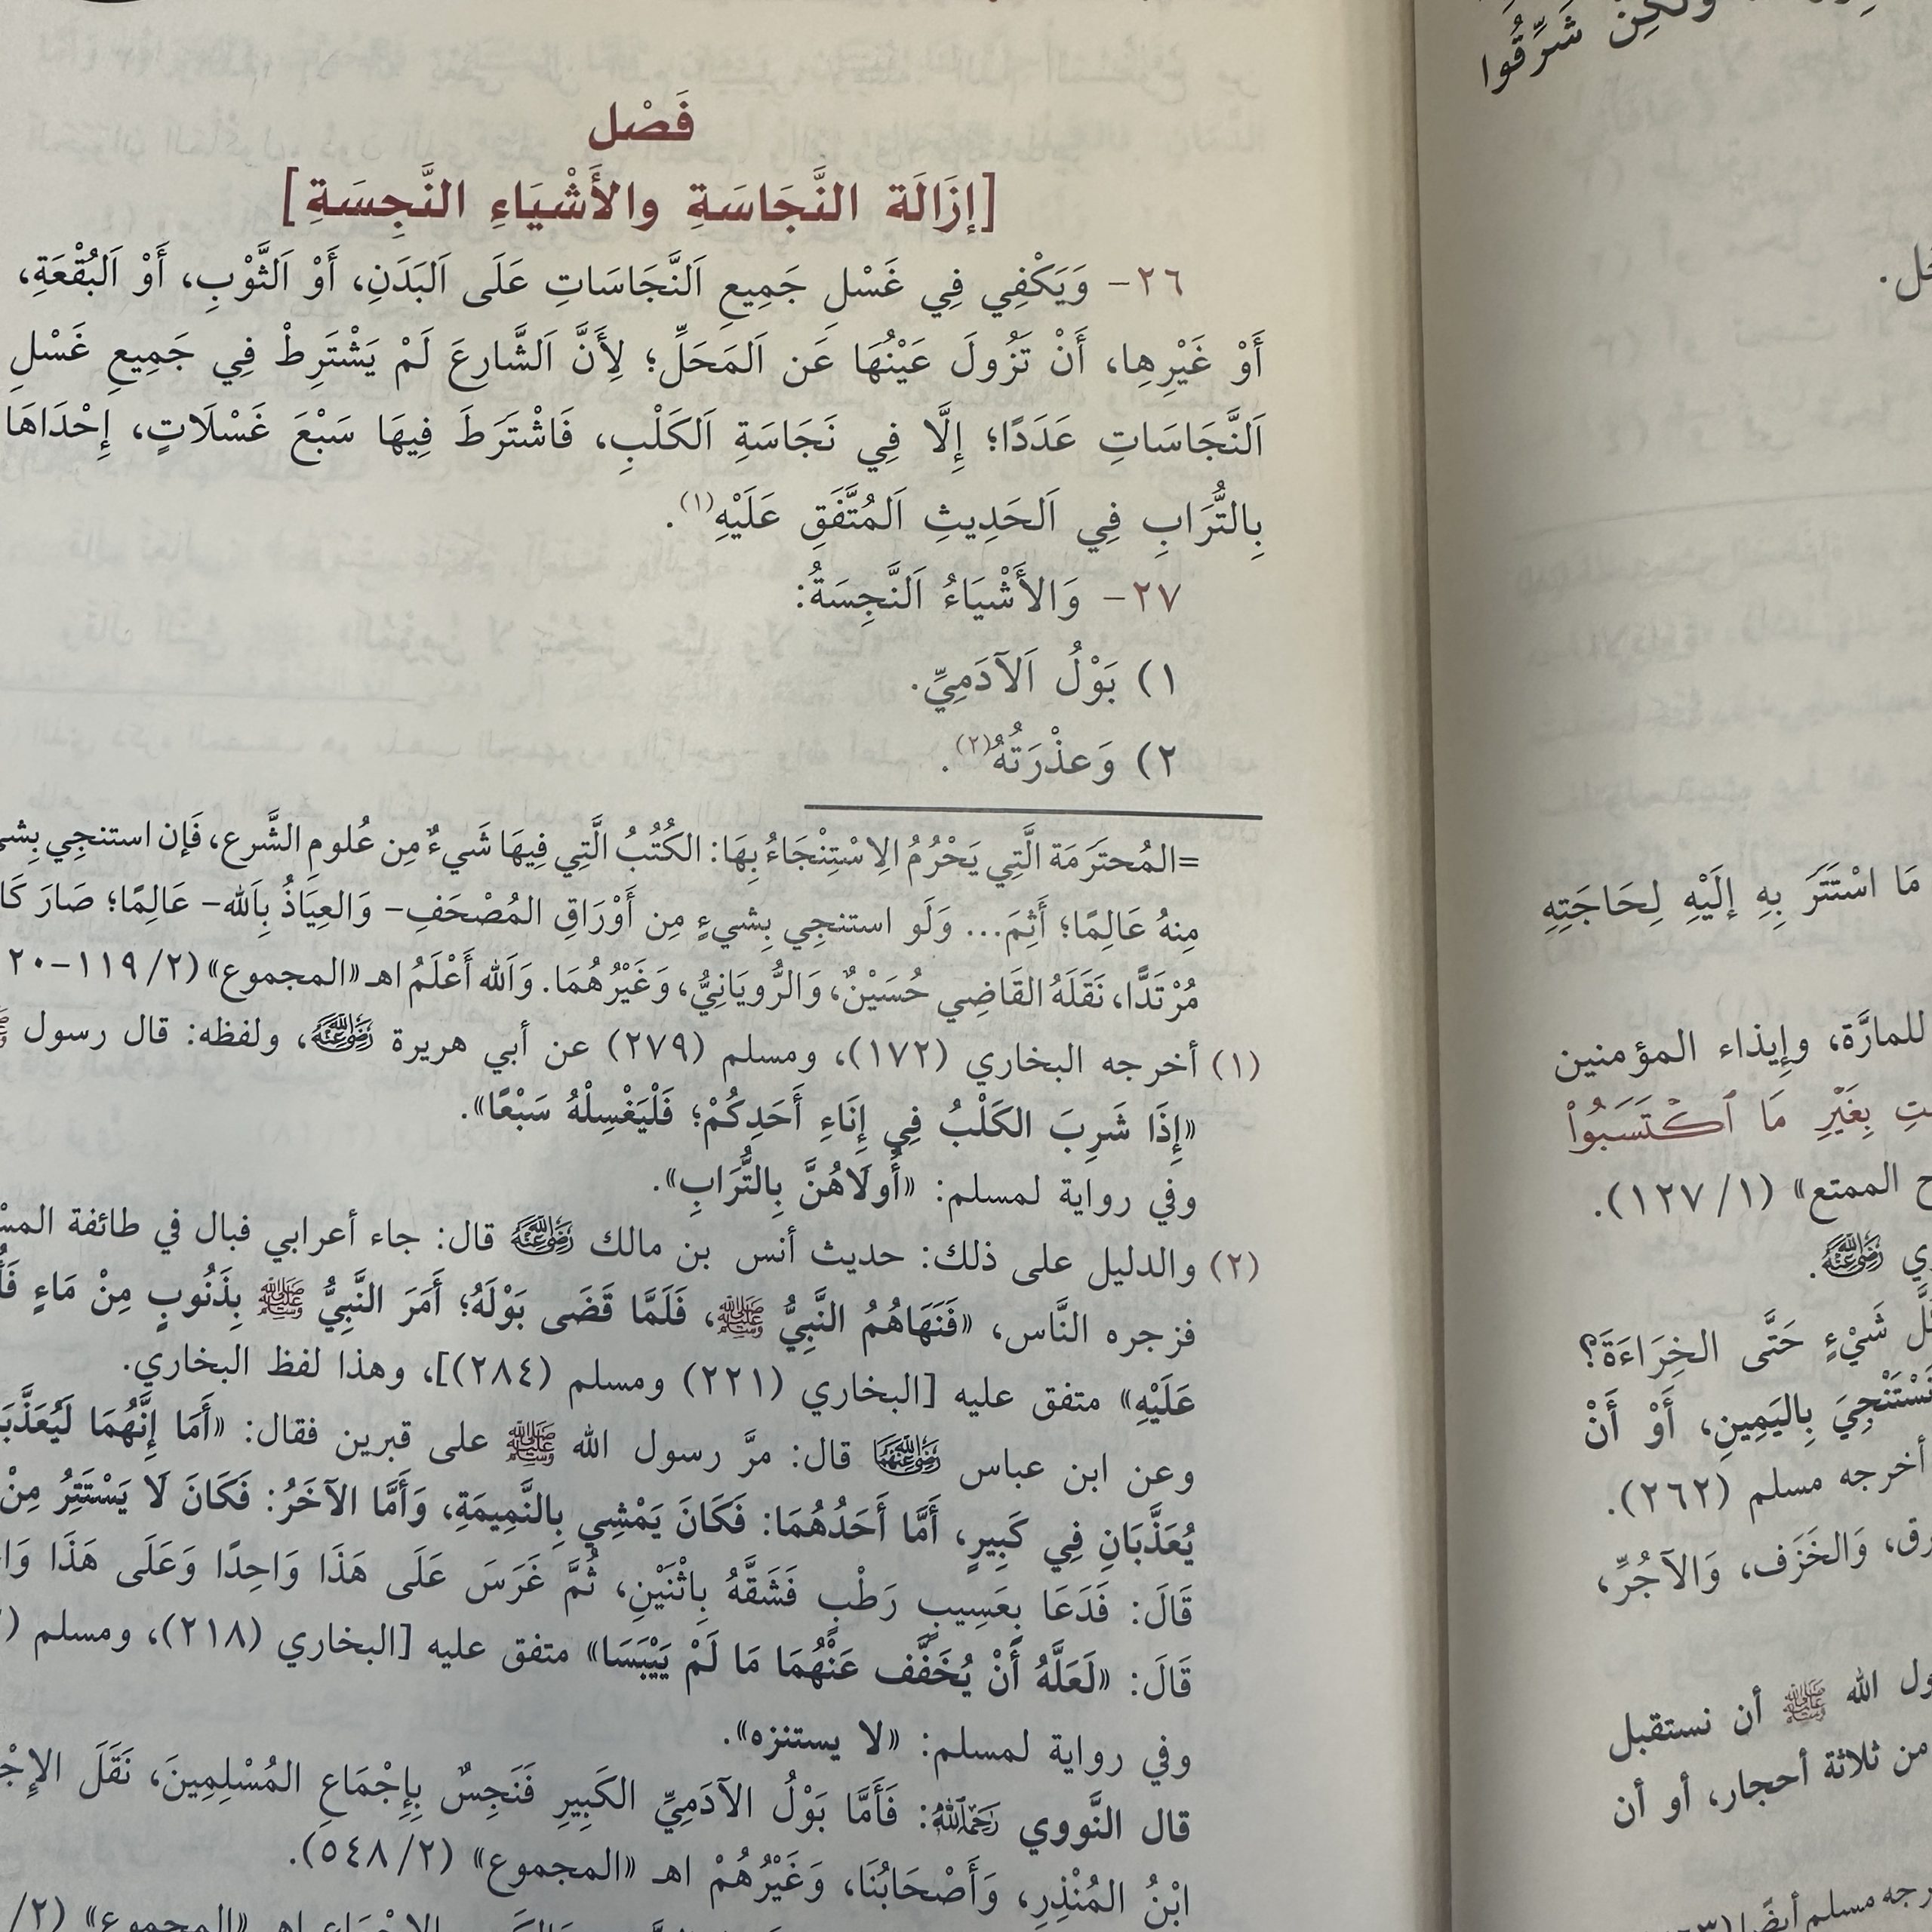 فَصْل
[إزَالَة النَّجَاسَةِ والأَشْيَاءِ النَّجِسَةِ]
٢٦- وَيَكْفِي فِي غَسْلِ جَمِيعِ اَلنَّجَاسَاتِ عَلَى اَلبَدَنِ، أَوْ اَلثَّوْبِ، أَوْ اَلبُقْعَةِ،
أَوْ غَيْرِهِا، أَنْ تَزُولَ عَيْنُهَا عَن اَلمَحَلِّ؛ لِأَنَّ اَلشَّارِعَ لَمْ يَشْتَرِطْ فِي جَمِيعِ غَسْلِ
اَلنَّجَاسَاتِ عَدَدًا؛ إِلَّا فِي نَجَاسَةِ اَلكَلْبِ، فَاشْتَرَطَ فِيهَا سَبْعَ غَسْلَاتٍ، إِحْدَاهَا
بِالتُّرَابِ فِي اَلحَدِيثِ اَلمُتَّفَقِ عَلَيْهِ(١).
٢٧- وَالأَشْيَاءُ اَلنَّجِسَةُ:
١) بَوْلُ اَلآدَمِيِّ.
٢) وَعذْرَتُهُ(٢).
=المُحتَرَمَة الَّتِي يَحْرُمُ الِاسْتِنْجَاءُ بِهَا: الكُتُبُ الَّتِي فِيهَا شَيءٌ مِن عُلومِ الشَّرع، فَإن استنجِي
مِنهُ عَالِمًا؛ أَثِمَ... وَلَو استنجِي بِشيءٍ مِن أَوْرَاقِ المُصْحَفِ- وَالعِيَاذُ بِاَلله- عَالِمًا؛ صَارَ
مُرْتَدًّا، نَقَلَهُ القَاضِي حُسَيْنٌ، وَالرُّويَانِيُّ، وَغَيْرُهُمَا. وَاَلله أَعْلَمُ اهـ «المجموع» (٢/ ١١٩-
(١) أخرجه البخاري (١٧٢)، ومسلم (٢٧٩) عن أبي هريرة رضي الله عنه، ولفظه: قال رسول
«إِذَا شَرِبَ الكَلْبُ فِي إِنَاءِ أَحَدِكُمْ؛ فَلْيَغْسِلْهُ سَبْعًا».
وفي رواية لمسلم: «أُولَاهُنَّ بِالتُّرَابِ».
(٢) والدليل على ذلك: حديث أنس بن مالك رضي الله عنه قال: جاء أعرابي فبال في طائفة
فزجره النَّاس، «فَنَهَاهُمُ النَّبِيُّ ﷺ، فَلَمَّا قَضَى بَوْلَهُ؛ أَمَرَ النَّبِيُّ ﷺ بِذَنُوبٍ مِنْ مَاءٍ
عَلَيْهِ» متفق عليه [البخاري (٢٢١) ومسلم (٢٨٤)]، وهذا لفظ البخاري.
وعن ابن عباس رضي الله عنهما قال: مرَّ رسول الله ﷺ على قبرين فقال: «أَمَا إِنَّهُمَا
يُعَذَّبَانِ فِي كَبِيرٍ، أَمَّا أَحَدُهُمَا: فَكَانَ يَمْشِي بِالنَّمِيمَةِ، وَأَمَّا الآخَرُ: فَكَانَ لَا يَسْتَتِرُ مِنْ
قَالَ: فَدَعَا بِعَسِيبٍ رَطْبٍ فَشَقَّهُ بِاثْنَيْنِ، ثُمَّ غَرَسَ عَلَى هَذَا وَاحِدًا وَعَلَى هَذَا
قَالَ: «لَعَلَّهُ أَنْ يُخَفَّف عَنْهُمَا مَا لَمْ يَيْبَسَا» متفق عليه [البخاري (٢١٨)، ومسلم
وفي رواية لمسلم: «لا يستنزه».
قال النَّووي رحمه الله: فَأَمَّا بَوْلُ الآدَمِيِّ الكَبِيرِ فَنَجِسٌ بِإِجْمَاعِ المُسْلِمِينَ، نَقَلَ
ابْنُ المُنْذِرِ، وَأَصْحَابُنَا، وَغَيْرُهُمْ اهـ «المجموع» (٢/ ٥٤٨).
اهـ «المجموع»
وَلَكِنْ شَرِّقُوا
مَا اسْتَتَرَ بِهِ إِلَيْهِ لِحَاجَتِهِ
للمارَّة، وإيذاء المؤمنين
بِغَيْرِ مَا ٱكْتَسَبُوا۟
الممتع» (١/ ١٢٧).
رضي الله عنه.
شَيْءٍ حَتَّى الخِرَاءَةَ؟
نَسْتَنْجِيَ بِاليَمِينِ، أَوْ أَنْ
أخرجه مسلم (٢٦٢).
وَالخَزَف، وَالآجُرِّ،
الله ﷺ أن نستقبل
من ثلاثة أحجار، أو أن
مسلم أيضًا